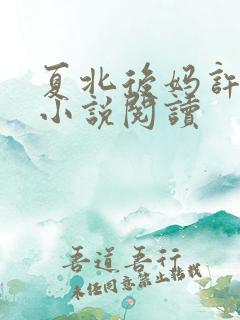 夏北後妈許
小說閱讀
吾道吾行
未经同意禁止转载